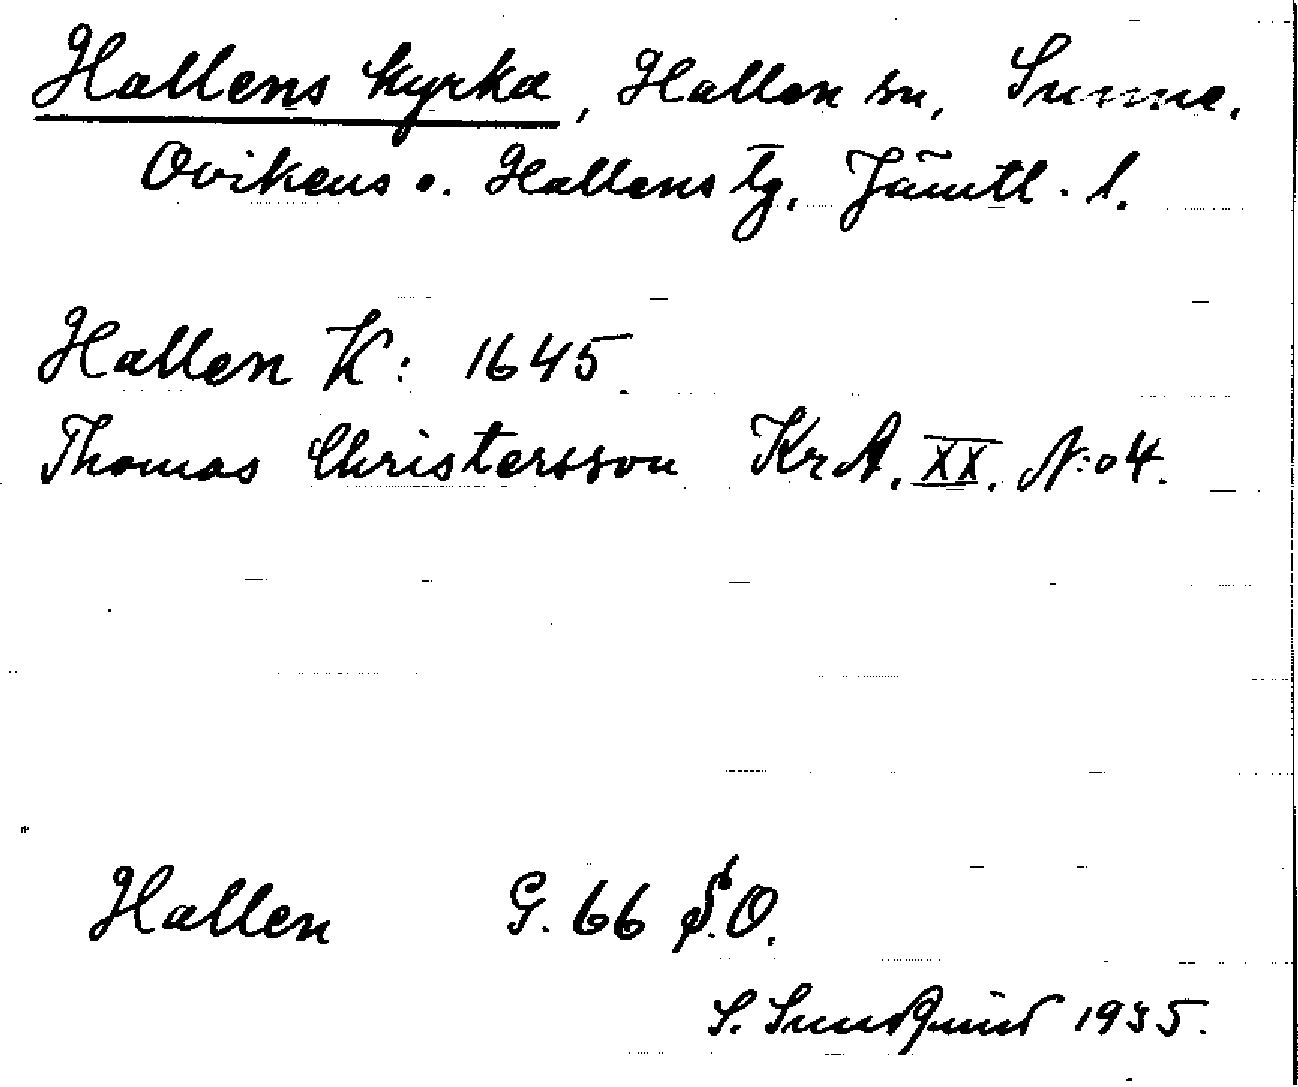 Hallens kyrka, Hallen sn, Sunne,
Ovikens o. Hallens tg, Jämtl. l.
Hallen K: 1645
Thomas Christersson KrA. XX. N:o 4.
Hallen G. 66 S.O.
S. Sundquist 1935.